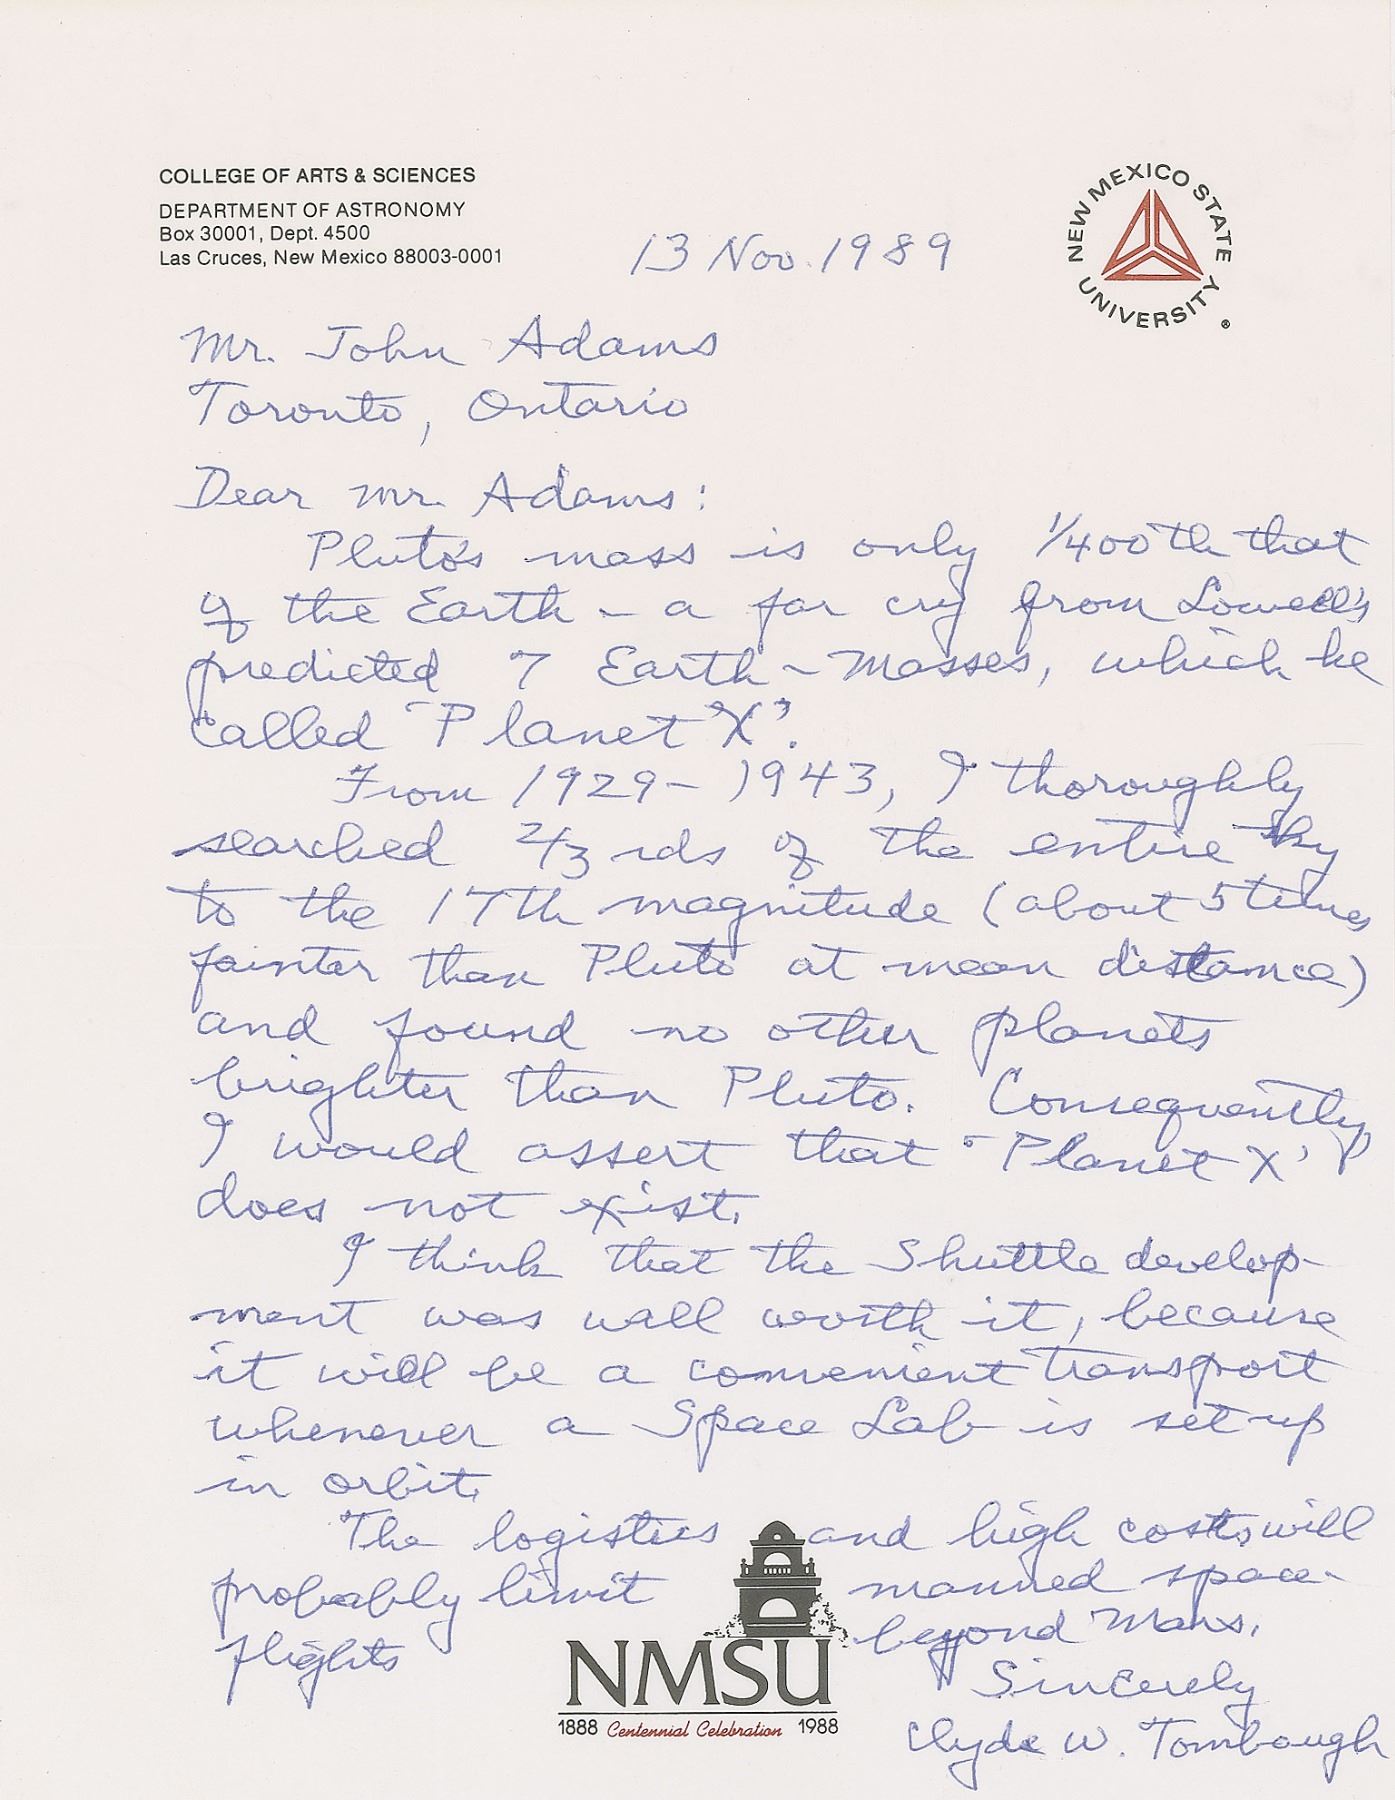 COLLEGE OF ARTS & SCIENCES
DEPARTMENT OF ASTRONOMY
Box 30001, Dept. 4500
Las Cruces, New Mexico 88003-0001
NEW MEXICO STATE UNIVERSITY ®
13 Nov. 1989
Mr. John Adams
Toronto, Ontario
Dear Mr. Adams:
Pluto's mass is only 1/400th that
of the Earth - a far cry from Lowell's
predicted 7 Earth-masses, which he
called "Planet X".
From 1929-1943, I thoroughly
searched 2/3rds of the entire sky
to the 17th magnitude (about 5 times
fainter than Pluto at mean distance)
and found no other planets
brighter than Pluto. Consequently,
I would assert that "Planet X"
does not exist.
I think that the Shuttle develop-
ment was well worth it, because
it will be a convenient transport
whenever a Space Lab is set up
in orbit.
The logistics and high costs will
probably limit manned space-
flights beyond Mars.
Sincerely
Clyde W. Tombaugh
NMSU
1888 Centennial Celebration 1988